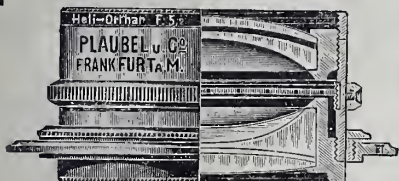 Heli-Orthar F. 5
PLAUBEL u. Co
FRANKFURT A. M.